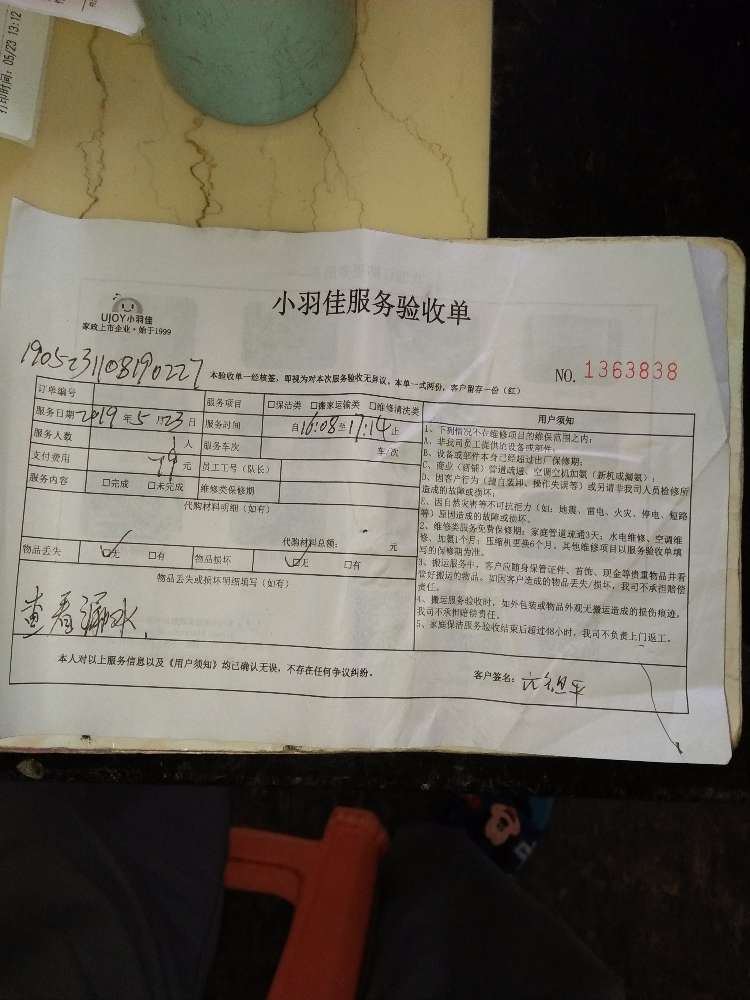 打印时间: 05/23 13:12
UJOY小羽佳
家政上市企业·始于1999
小羽佳服务验收单
1905231108190227
本验收单一经核签，即视为对本次服务验收无异议。本单一式两份，客户留存一份（红）
NO. 1363838
订单编号 服务项目 □保洁类 □搬家运输类 □维修清洗类
服务日期 2019 年 5 月 23 日 服务时间 自 16:08 至 17:14 止
服务人数 1 人 服务车次 车/次
支付费用 元 员工工号（队长）
服务内容 □完成 □未完成 维修类保修期
代购材料明细（如有）
代购材料总额： 元
物品丢失 □无 □有 物品损坏 □无 □有
物品丢失或损坏明细填写（如有）
查看漏水
用户须知
1、下列情况不在维修项目的维保范围之内：
A、非我司员工提供的设备或部件；
B、设备或部件本身已经超过出厂保修期；
C、商业（商铺）管道疏通、空调空机加氨（新机或漏氨）；
D、因客户行为（擅自装卸、操作失误等）或另请非我司人员检修所
造成的故障或损坏；
E、因自然灾害等不可抗拒力（如：地震、雷电、火灾、停电、短路
等）原因造成的故障或损坏。
2、维修类服务免费保修期：家庭管道疏通3天；水电维修、空调维
修、加氨1个月；压缩机更换6个月。其他维修项目以服务验收单填
写的保修期为准。
3、搬运服务中，客户应随身保管证件、首饰、现金等贵重物品并看
管好搬运的物品。如因客户造成的物品丢失/损坏，我司不承担赔偿
责任。
4、搬运服务验收时，如外包装或物品外观无搬运造成的损伤痕迹，
我司不承担赔偿责任。
5、家庭保洁服务验收结束后超过48小时，我司不负责上门返工。
本人对以上服务信息以及《用户须知》均已确认无误，不存在任何争议纠纷。
客户签名：